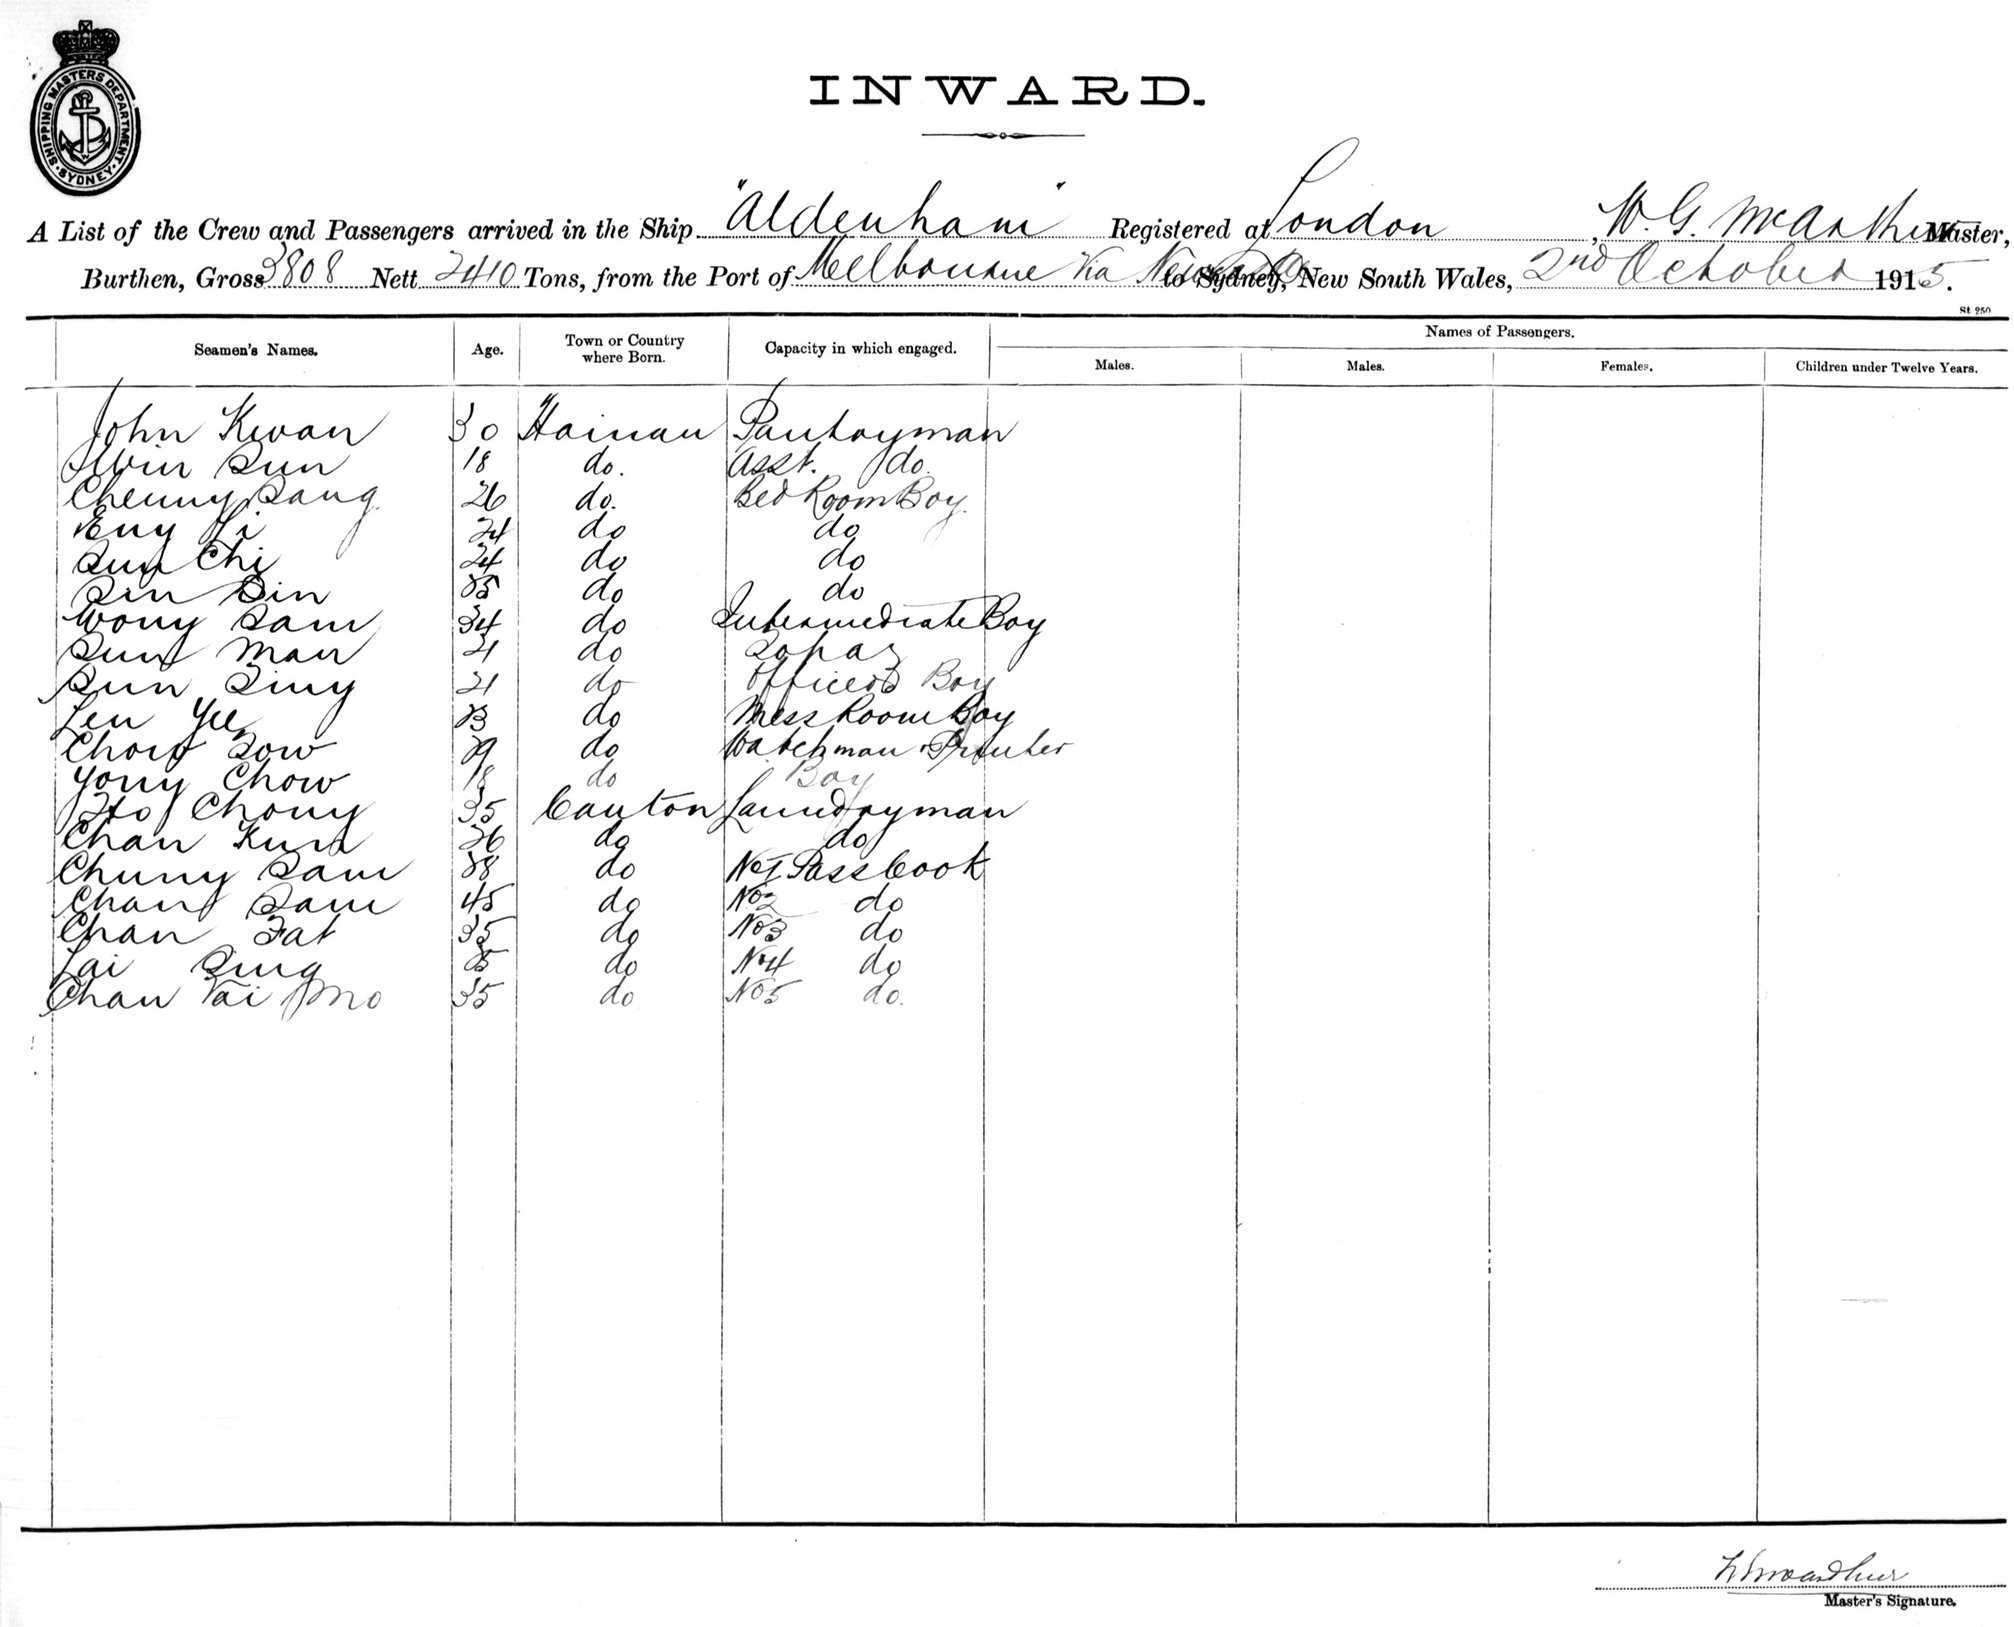 SHIPPING MASTERS DEPARTMENT SYDNEY
INWARD.
A List of the Crew and Passengers arrived in the Ship "Aldenham" Registered at London, W. G. McArthur Master,
Burthen, Gross 3808 Nett 2410 Tons, from the Port of Melbourne Via to Sydney, New South Wales, 2nd October 1915.
St 250
Seamen's Names. Age. Town or Country where Born. Capacity in which engaged. Names of Passengers.
Males. Males. Females. Children under Twelve Years.
John Kwan 30 Hainan Pantryman
Sun 18 do. Asst. do.
Cheung Sang 26 do. Bed Room Boy.
24 do do
Sun Chi 24 do do
Sin Sin 35 do do
Wong Sam 34 do Intermediate Boy
Sun Man 21 do
Sun Sing 21 do Officers Boy
Len Yee 23 do Mess Room Boy
Chow Sow 29 do Watchman & Printer
Yong Chow 18 do Boy
Ho Chong 35 Canton Laundryman
Chan Kun 26 do do
Chung Sam 38 do No 1 Pass Cook
Chan Sam 45 do No 2 do
Chan Fat 35 do No 3 do
Lai Sing do No 4 do
Chan Tai Mo 35 do No 5 do.
Master's Signature.